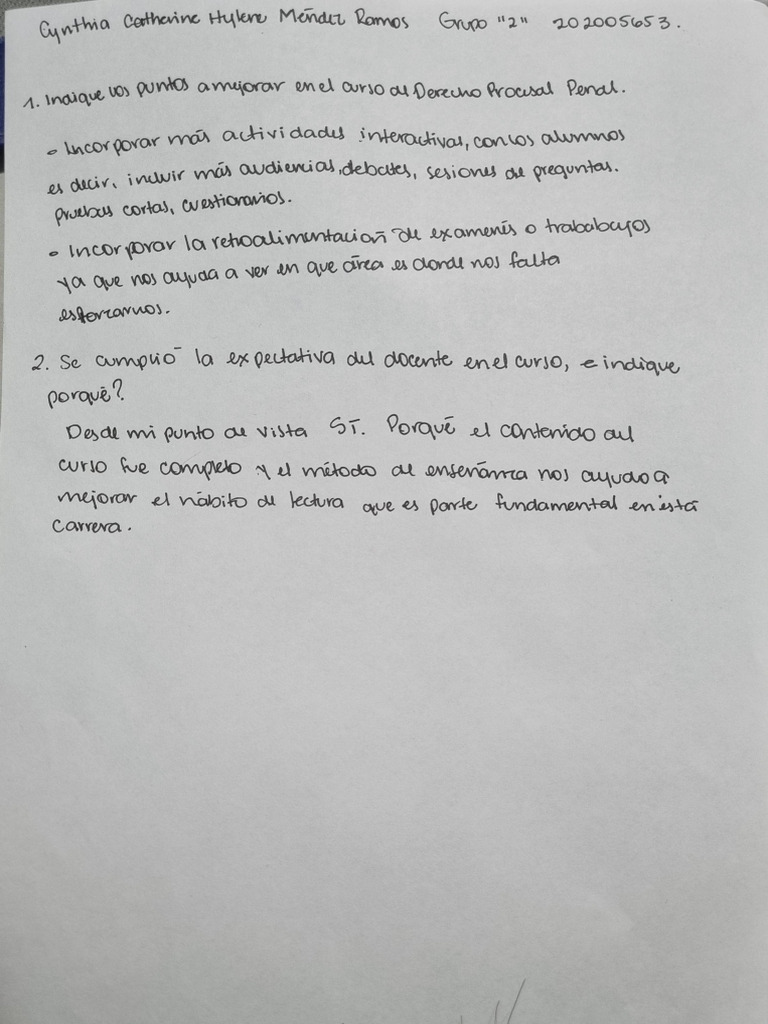 Cynthia Catherine Hylene Méndez Ramos Grupo "2" 202005653.
1. Indique los puntos a mejorar en el curso de Derecho Procesal Penal.
• Incorporar más actividades interactivas, con los alumnos
es decir, incluir más audiencias, debates, sesiones de preguntas.
pruebas cortas, cuestionarios.
• Incorporar la retroalimentación de examenés o trababajos
ya que nos ayuda a ver en que área es donde nos falta
esforzarnos.
2. Se cumplió la expectativa del docente en el curso, e indique
porqué?
Desde mi punto de vista SÍ. Porqué el contenido del
curso fue completo y el método de enseñánza nos ayudo a
mejorar el hábito de lectura que es parte fundamental en está
carrera.